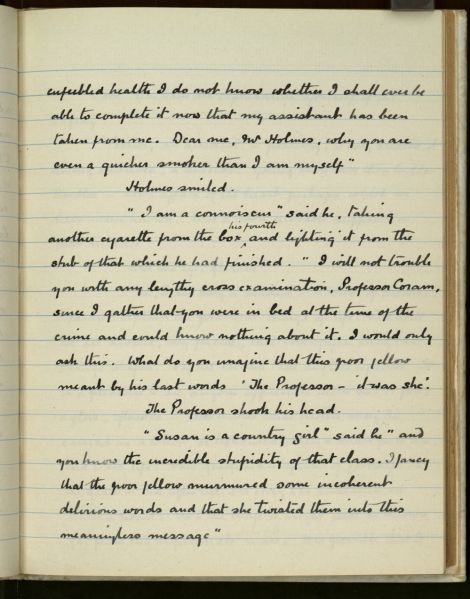 enfeebled health I do not know whether I shall ever be
able to complete it now that my assistant has been
taken from me. Dear me, Mr Holmes, why you are
even a quicker smoker than I am myself"
Holmes smiled.
"I am a connoiseur" said he, taking
his fourth
another cigarette from the box, and lighting it from the
stub of that which he had finished. "I will not trouble
you with any lengthy cross examination, Professor Coram,
since I gather that you were in bed at the time of the
crime and could know nothing about it. I would only
ask this. What do you imagine that this poor fellow
meant by his last words 'The Professor – it was she'.
The Professor shook his head.
"Susan is a country girl" said he "and
you know the incredible stupidity of that class. I fancy
that the poor fellow murmured some incoherent
delirious words and that she twisted them into this
meaningless message"